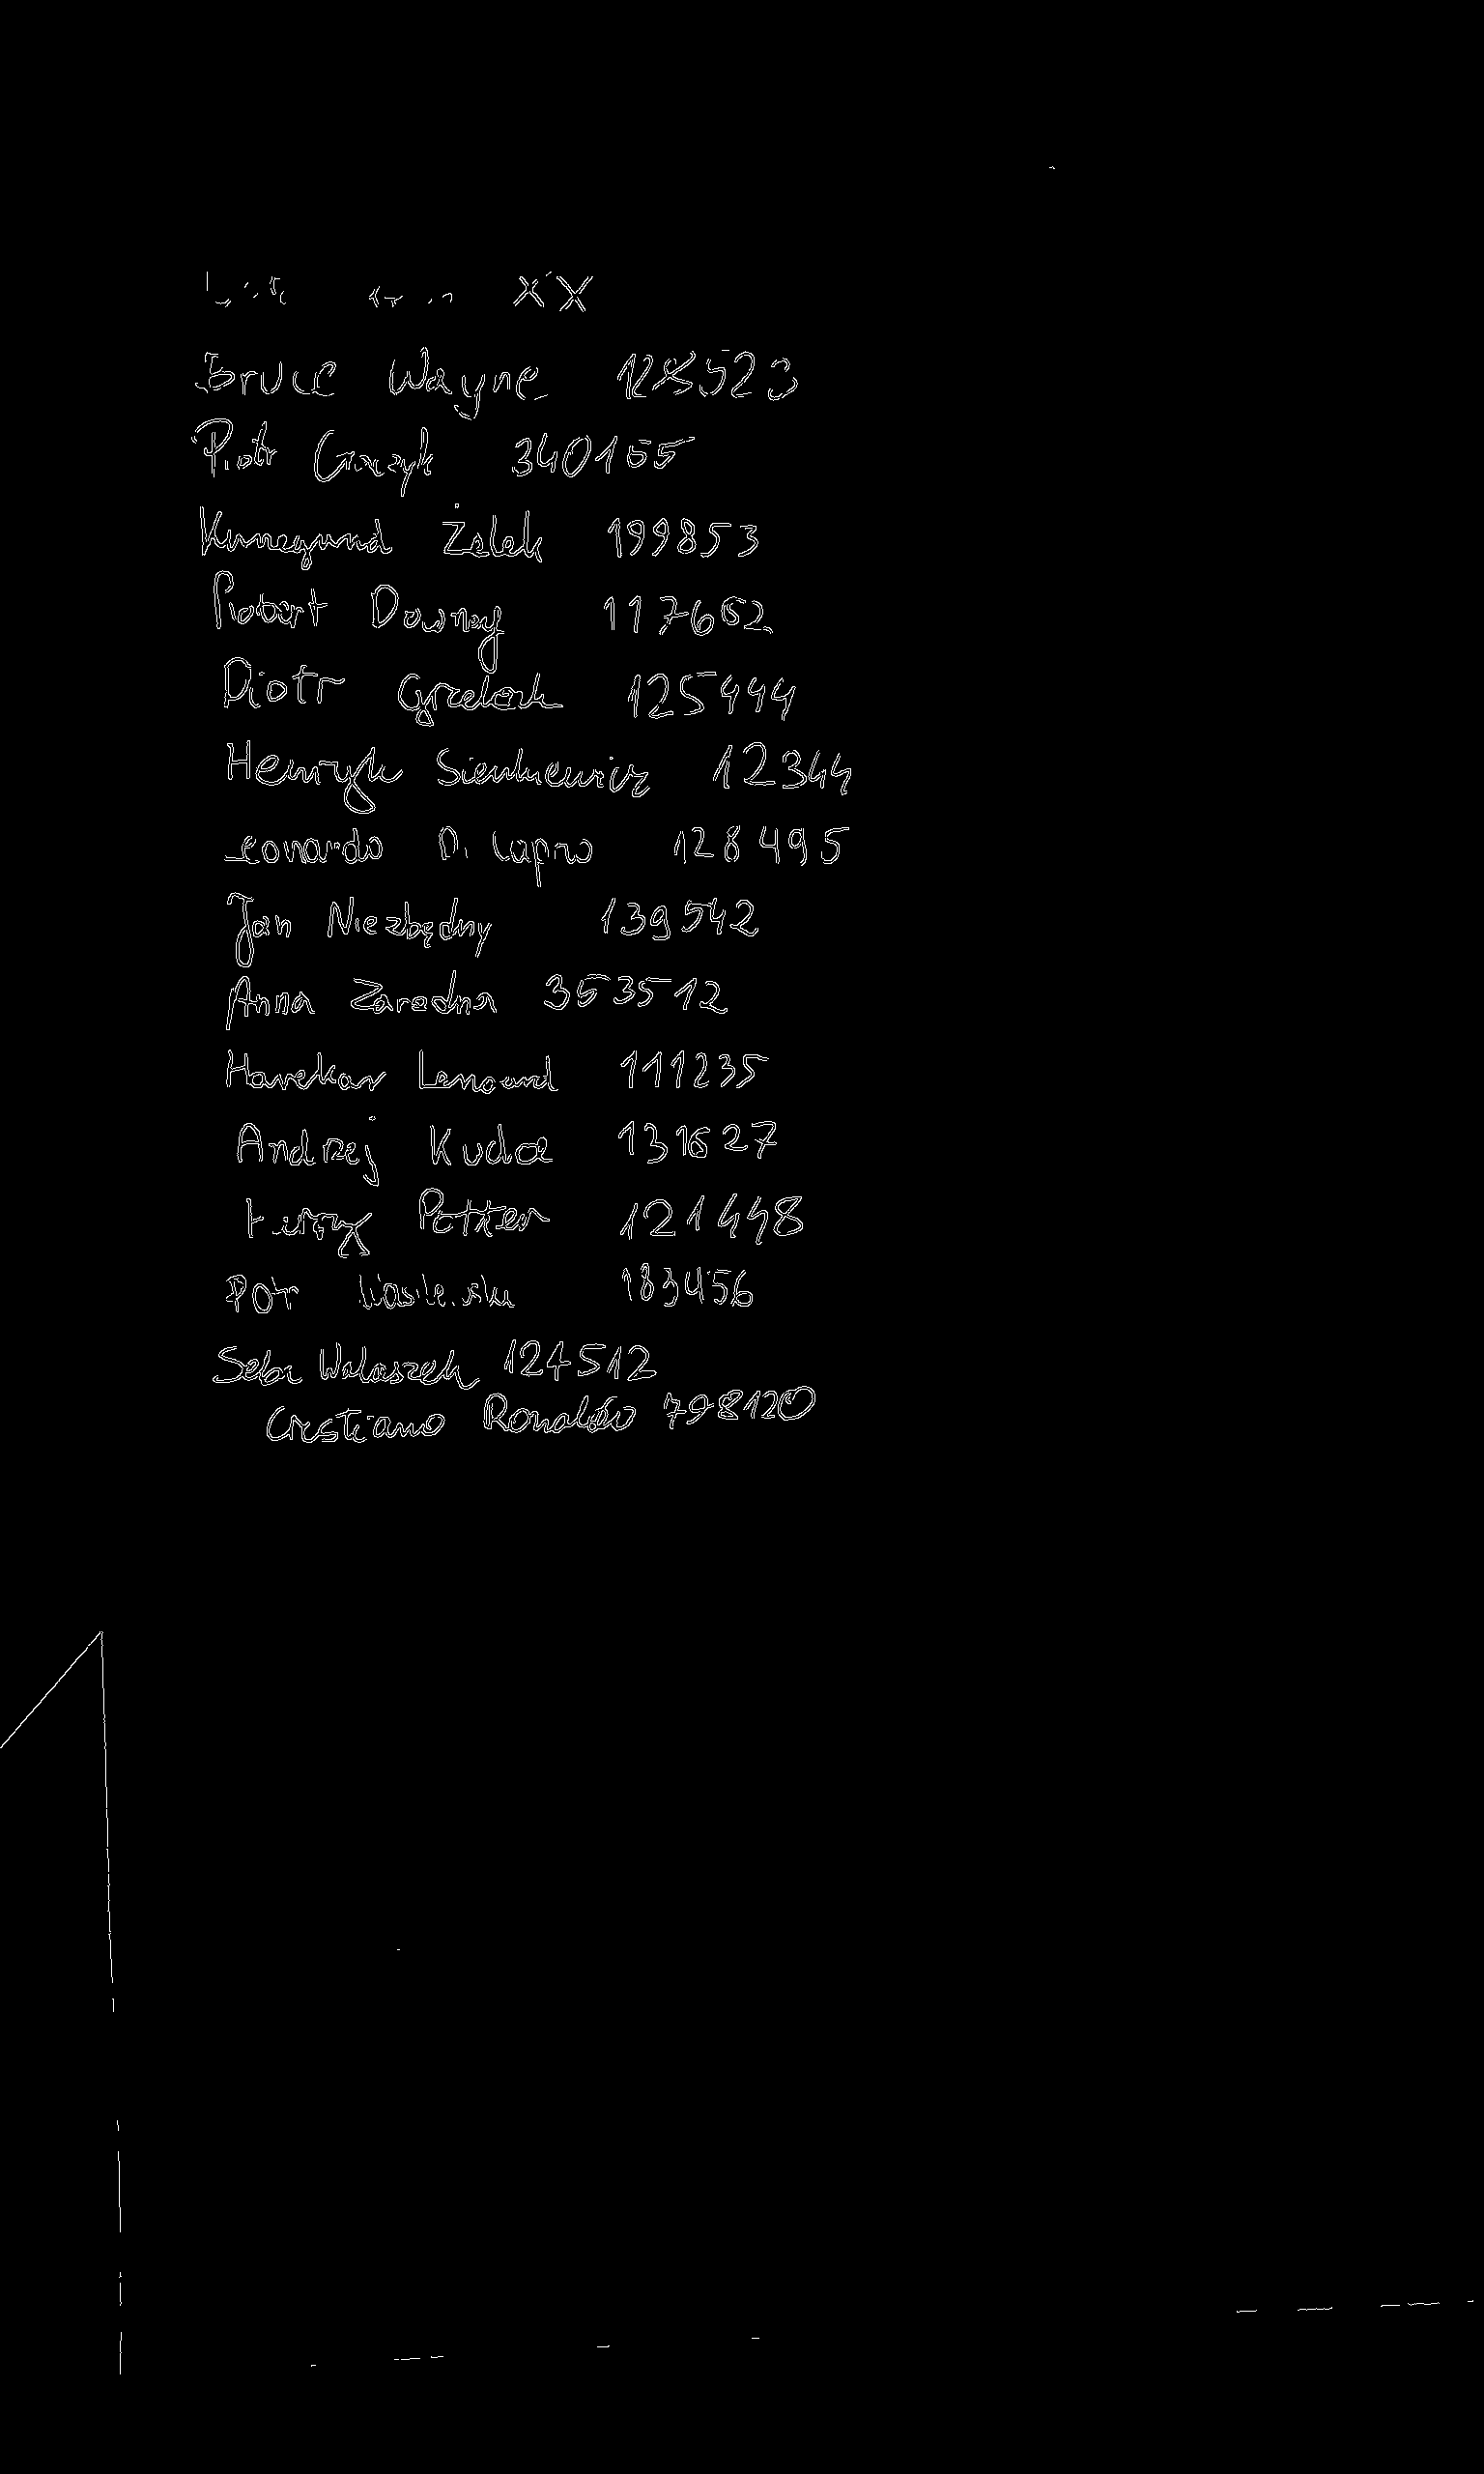 XX
Bruce Wayne 128523
Piotr 340165
Kunegund Żelek 199853
Robert Downey 117662
Piotr Grzelak 125444
Henryk Sienkiewicz 12344
Leonardo Di Caprio 128495
Jan Niezbędny 139542
Anna Zaradna 353512
Harekar Lenoard 111235
Andrzej Kudła 131627
Harry Potter 121448
Piotr 183456
Seba Walaszek 124512
Crestiano Ronaldo 798120